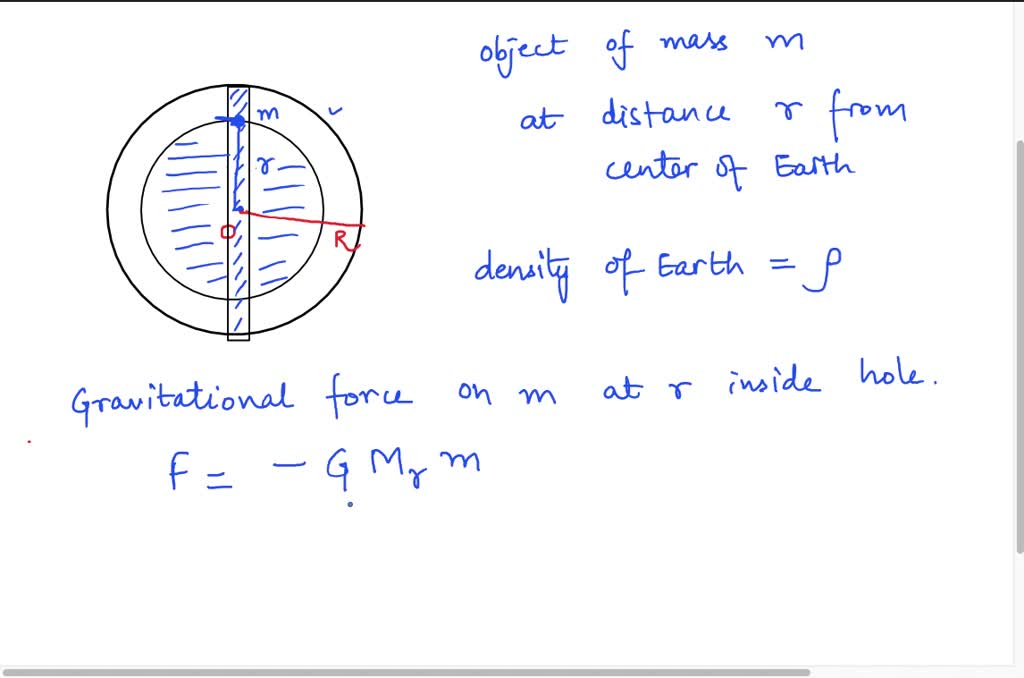 object of mass m
at distance r from
center of Earth
m
r
O
R
density of Earth = ρ
Gravitational force on m at r inside hole.
F = - G Mr m